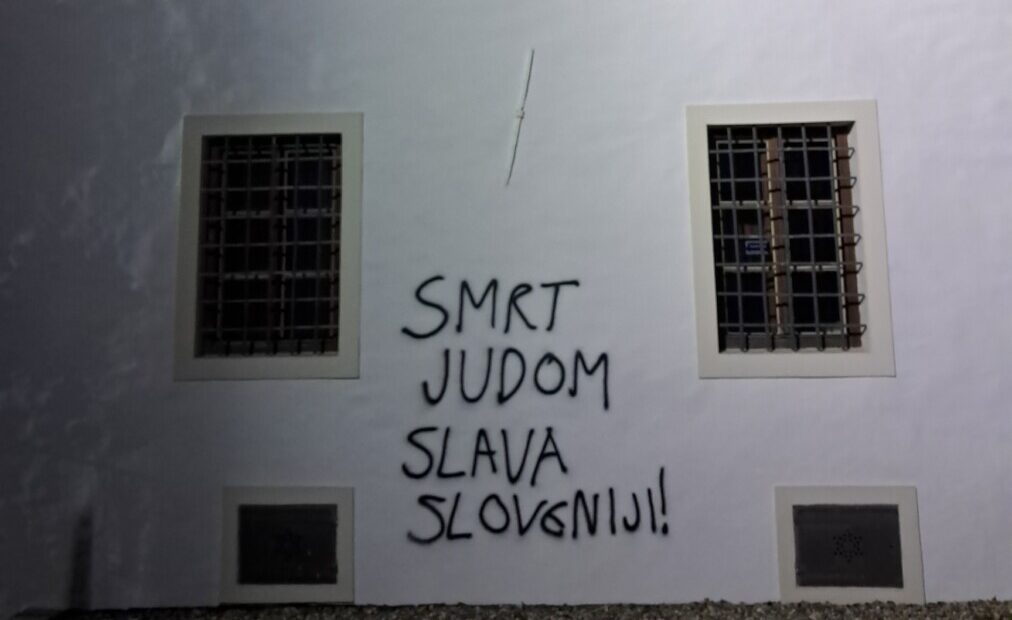 SMRT
JUDOM
SLAVA
SLOVENIJI!